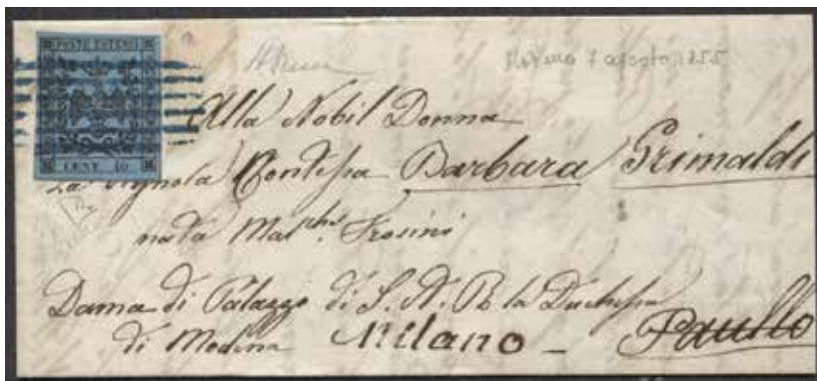 POSTE ESTENSI
CENT. 40
7 agosto 1855
Alla Nobil Donna
La Signola Contessa Barbara Grimaldi
nata Mal<sup>chi</sup>. Frosini
Dama di Palazzo di S. A. R. la Duchessa
di Modena Milano – Paullo